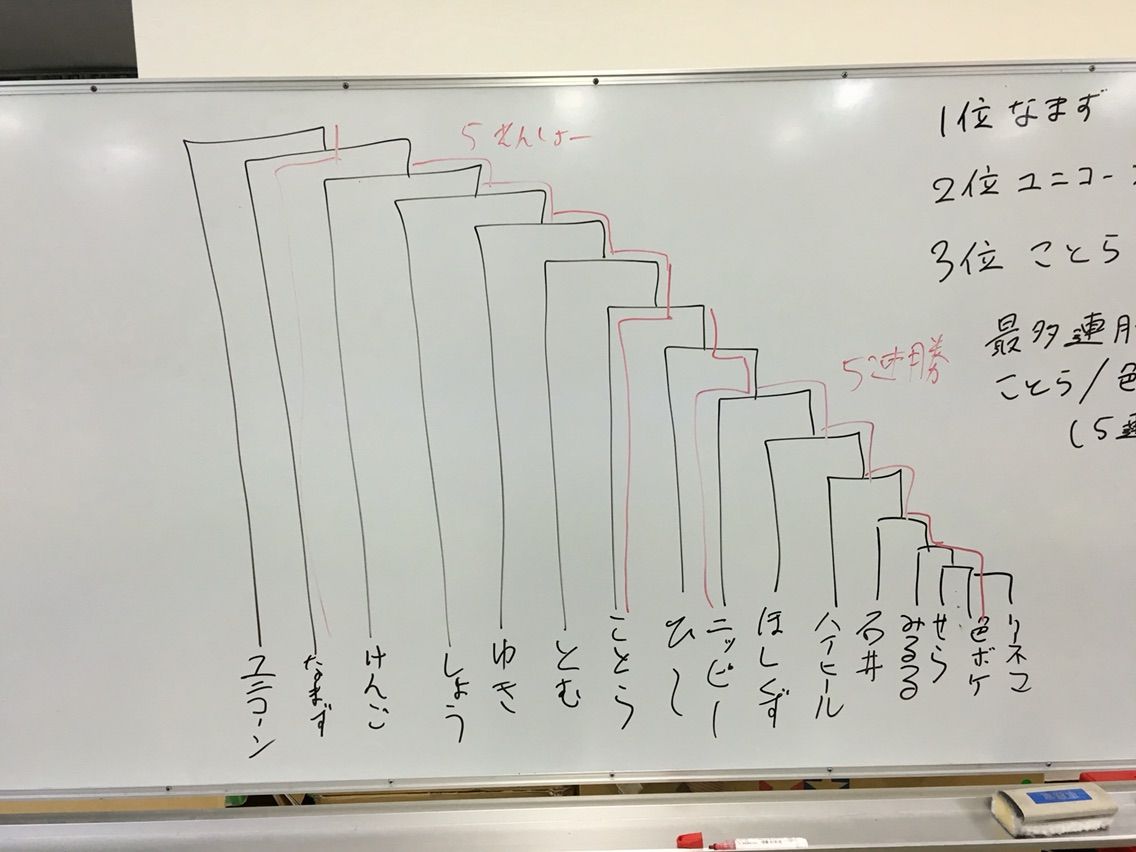 5れんしょー
1位 なまず
2位 ユニコー
3位 ことら
5連勝
最多連
ことら/色
(5連
ユニコーン
なまず
けんご
しょう
ゆき
とむ
ことら
ひー
ニッピー
ほしくず
ハイヒール
石井
みるる
せら
色ボケ
リネマ